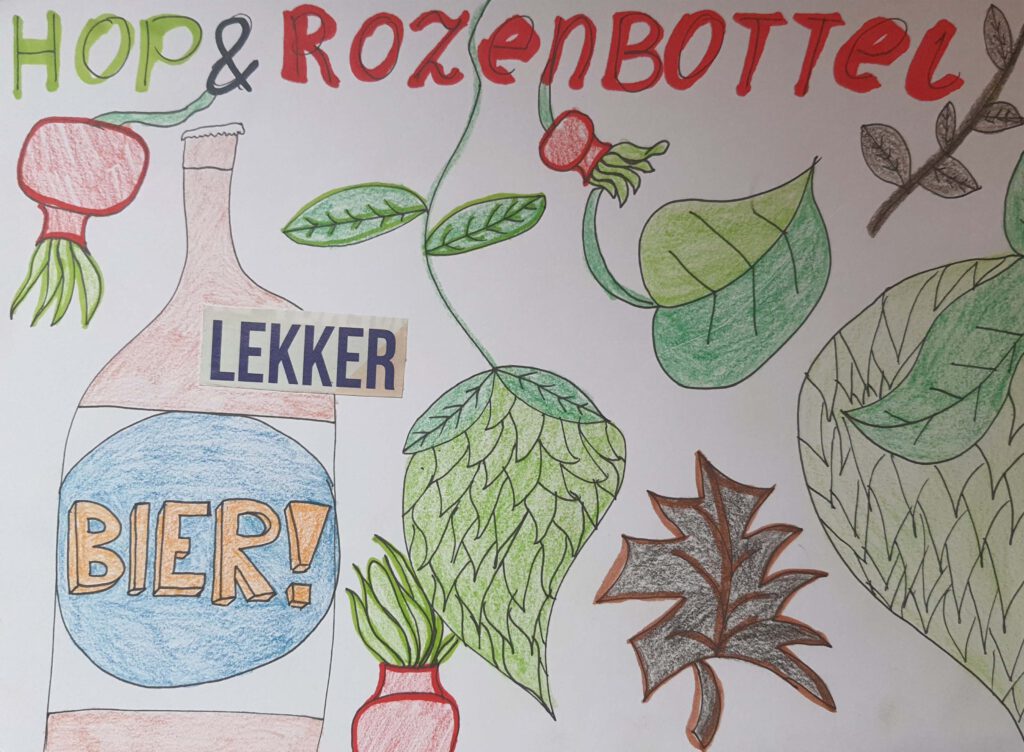 HOP & ROZENBOTTEL
LEKKER
BIER!